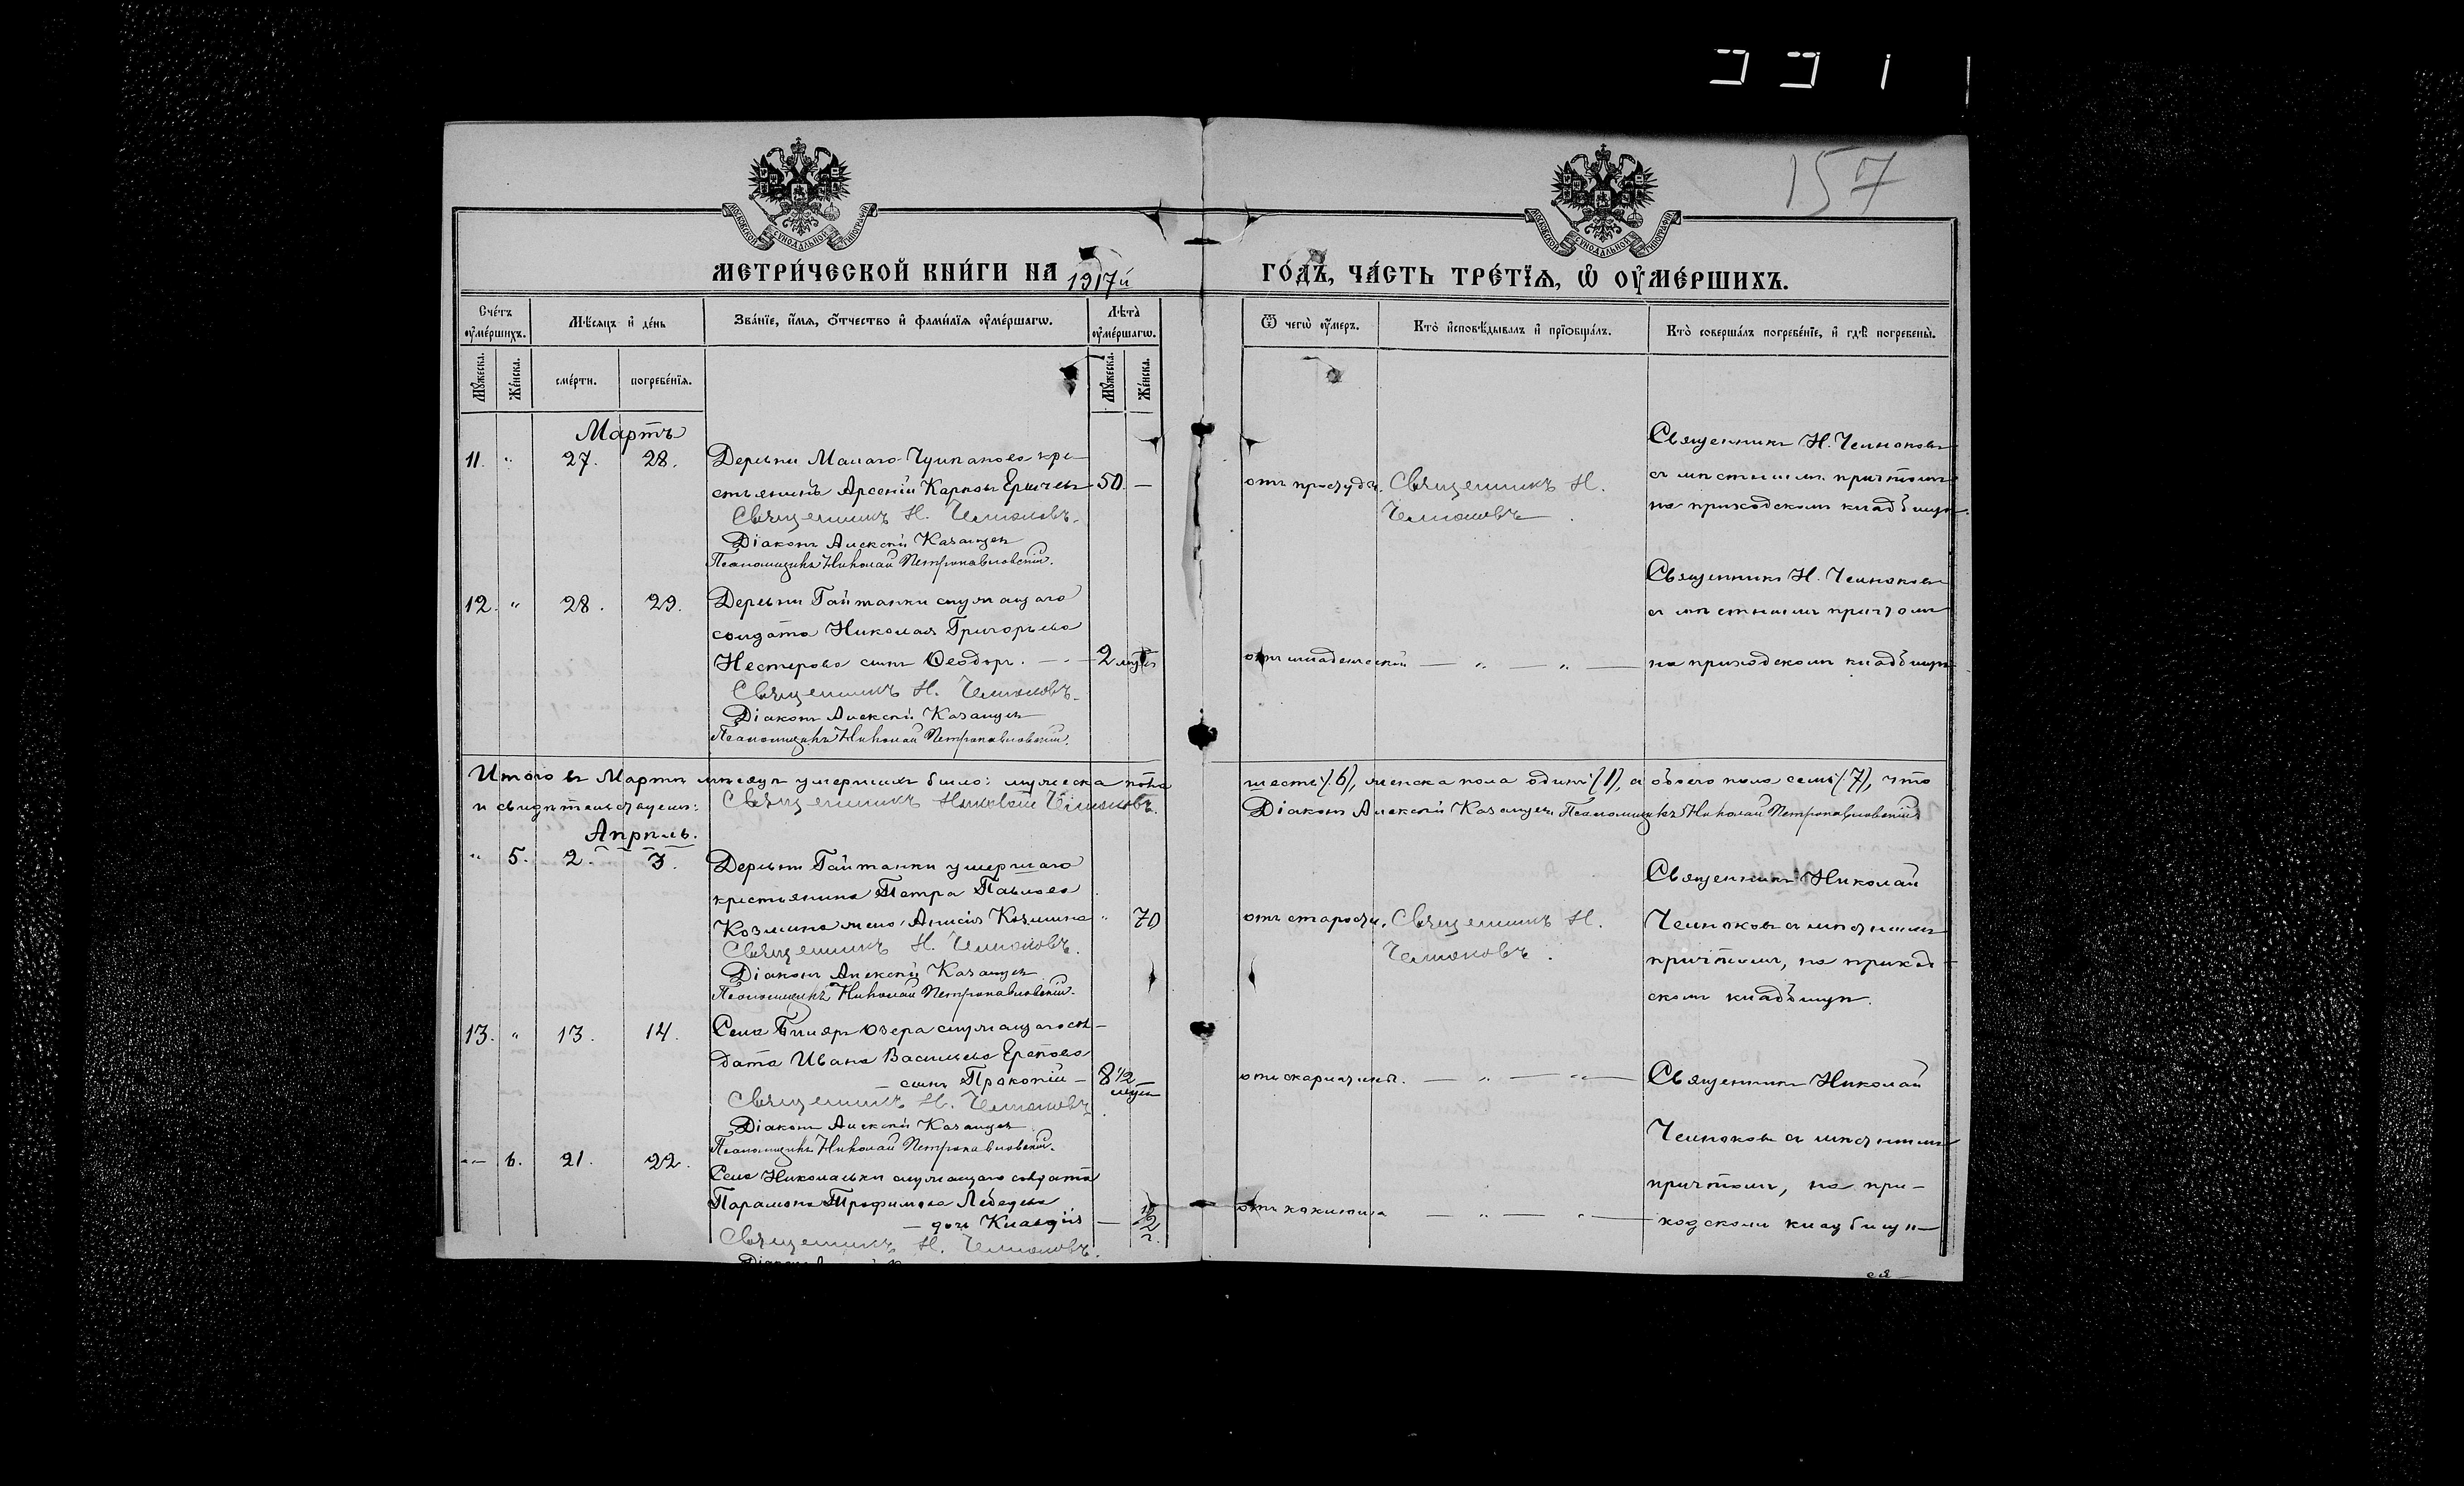 157
МОСКОВСКОЙ СУНОДАЛЬНОЙ ТИПОГРАФІИ
МОСКОВСКОЙ СУНОДАЛЬНОЙ ТИПОГРАФІИ
МЕТРИ́ЧЕСКОЙ КНИ́ГИ НА 1917й
ГО́ДЪ, ЧА́СТЬ ТРЕ́ТЇѦ, Ѡ ОУ҆МЕ́РШИХЪ.
Сче́тъ оу҆ме́ршихъ.
Мѣ́сяцъ и҆ де́нь
Зва́нїе, и҆́мѧ, ѻ҆́тчество и҆ фами́лїѧ оу҆ме́ршагѡ.
Лѣ́та̀ оу҆ме́ршагѡ.
Мꙋ́жеска.
Же́нска.
сме́рти.
погребе́нїѧ.
Мꙋ́жеска.
Же́нска.
Ѿ чегѡ̀ оу҆́меръ.
Кто̀ и҆сповѣ́дывалъ и҆ прїѡбща́лъ.
Кто̀ соверша́лъ погребе́нїе, и҆ гдѣ̀ погребены̀.
Мартъ
11. " 27. 28. Деревни Малаго-Чулпанова кре-
стьянинъ Арсеній Карповъ 50 —
Священникъ Н. Челноковъ.
Діаконъ Алексѣй Казанцев
Псаломщикъ Николай Петропавловскій.
отъ простуды. Священникъ Н.
Челноковъ
Священникъ Н. Челноковъ
съ мѣстнымъ причтомъ
на приходскомъ кладбищѣ.
12. " 28. 29. Деревни Гайтанки служащаго
солдата Николая Григорьева
Нестерова сынъ Ѳеодоръ. — 2
Священникъ Н. Челноковъ.
Діаконъ Алексѣй Казанцев
Псаломщикъ Николай Петропавловскій.
отъ младенческой — " — " —
Священникъ Н. Челноковъ
съ мѣстнымъ причтомъ
на приходскомъ кладбищѣ
Итого въ Мартѣ мѣсяцѣ умершихъ было: мужеска пола шесть (6), женска пола одинъ (1), а обоего пола семь (7), что
и свидѣтельствуемъ: Священникъ Николай Челноковъ. Діаконъ Алексѣй Казанцев Псаломщикъ Николай Петропавловскій
Апрѣль.
" 5. 2. 3. Деревни Гайтанки умершаго
крестьянина Петра Павлова
Козмина жена Анисія Козмина " 70
Священникъ Н. Челноковъ.
Діаконъ Алексѣй Казанцев
Псаломщикъ Николай Петропавловскій.
отъ старости. Священникъ Н.
Челноковъ.
Священникъ Николай
Челноковъ съ мѣстнымъ
причтомъ, на приход-
скомъ кладбищѣ.
13. " 13. 14. Села Биляръ Озера служащаго сол-
дата Ивана Васильева
— сынъ Прокопій — 8 1/2
Священникъ Н. Челноковъ
Діаконъ Алексѣй Казанцев
Псаломщикъ Николай Петропавловскій.
отъ скарлатины. — " — " —
Священникъ Николай
Челноковъ съ мѣстнымъ
причтомъ, на при-
ходскомъ кладбищѣ
— 6. 21. 22. Села Никольки служащаго солдата
Парамона Трофимова Лебедева
— дочь Клавдія —
Священникъ Н. Челноковъ.
отъ коклюша — " — " —